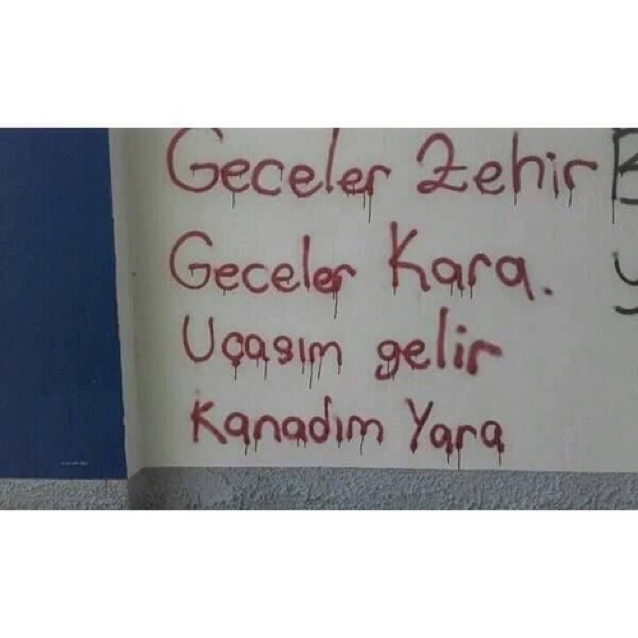 Geceler Zehir
Geceler Kara.
Uçasım gelir
Kanadım Yara